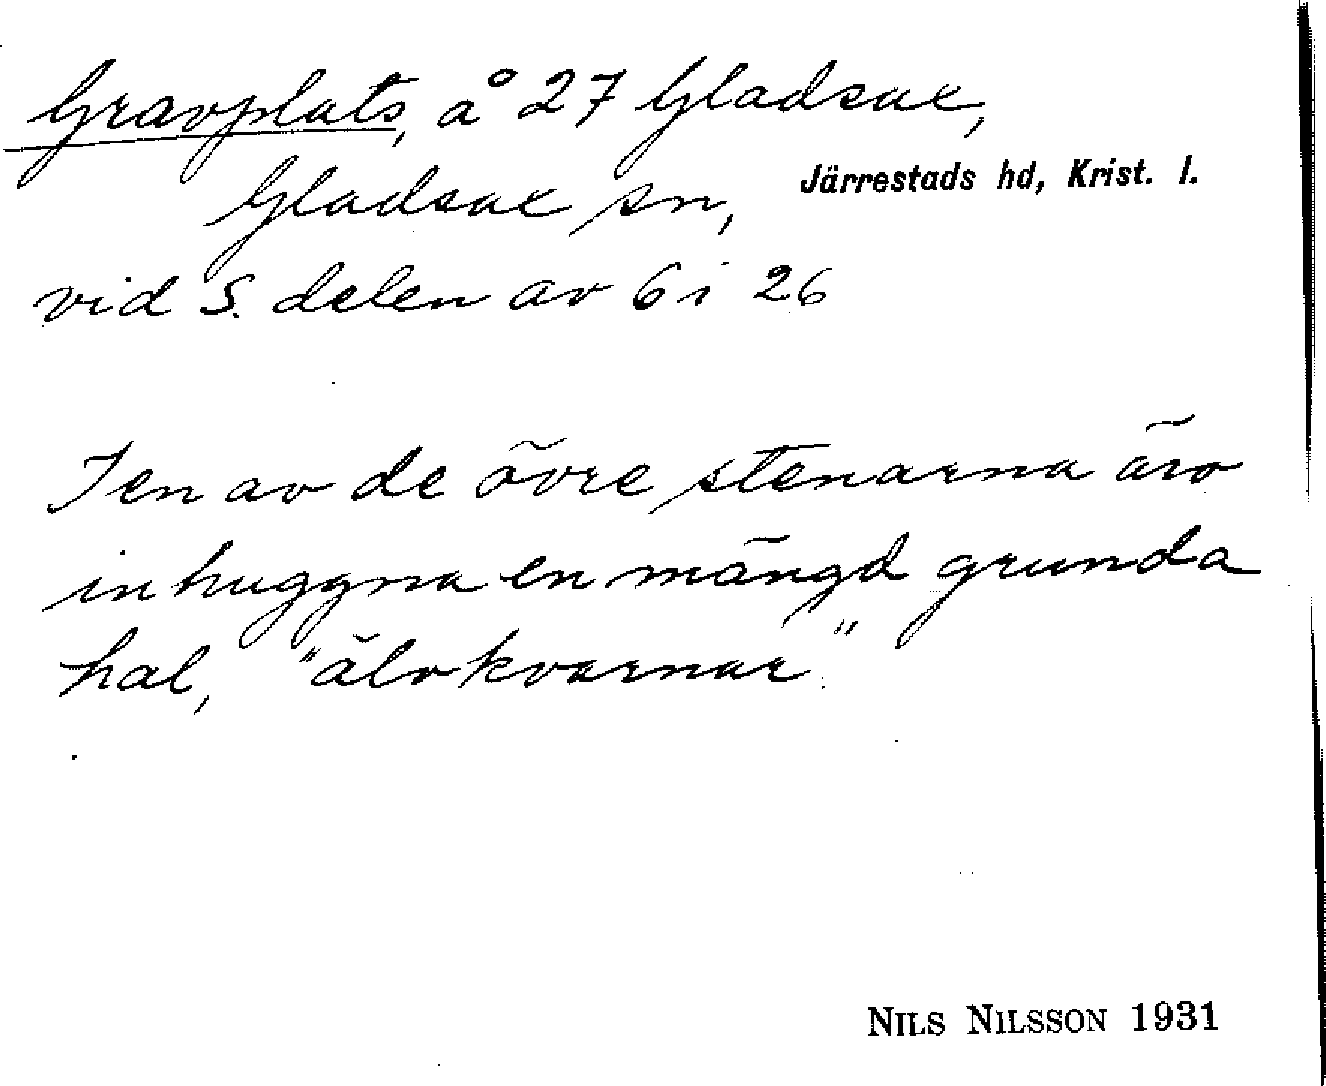 Gravplats, å 27 Gladsax,
Gladsax sn, Järrestads hd, Krist. l.
vid S. delen av 6 i 26
I en av de övre stenarna äro
inhuggna en mängd grunda
hål, "älvkvarnar"
NILS NILSSON 1931